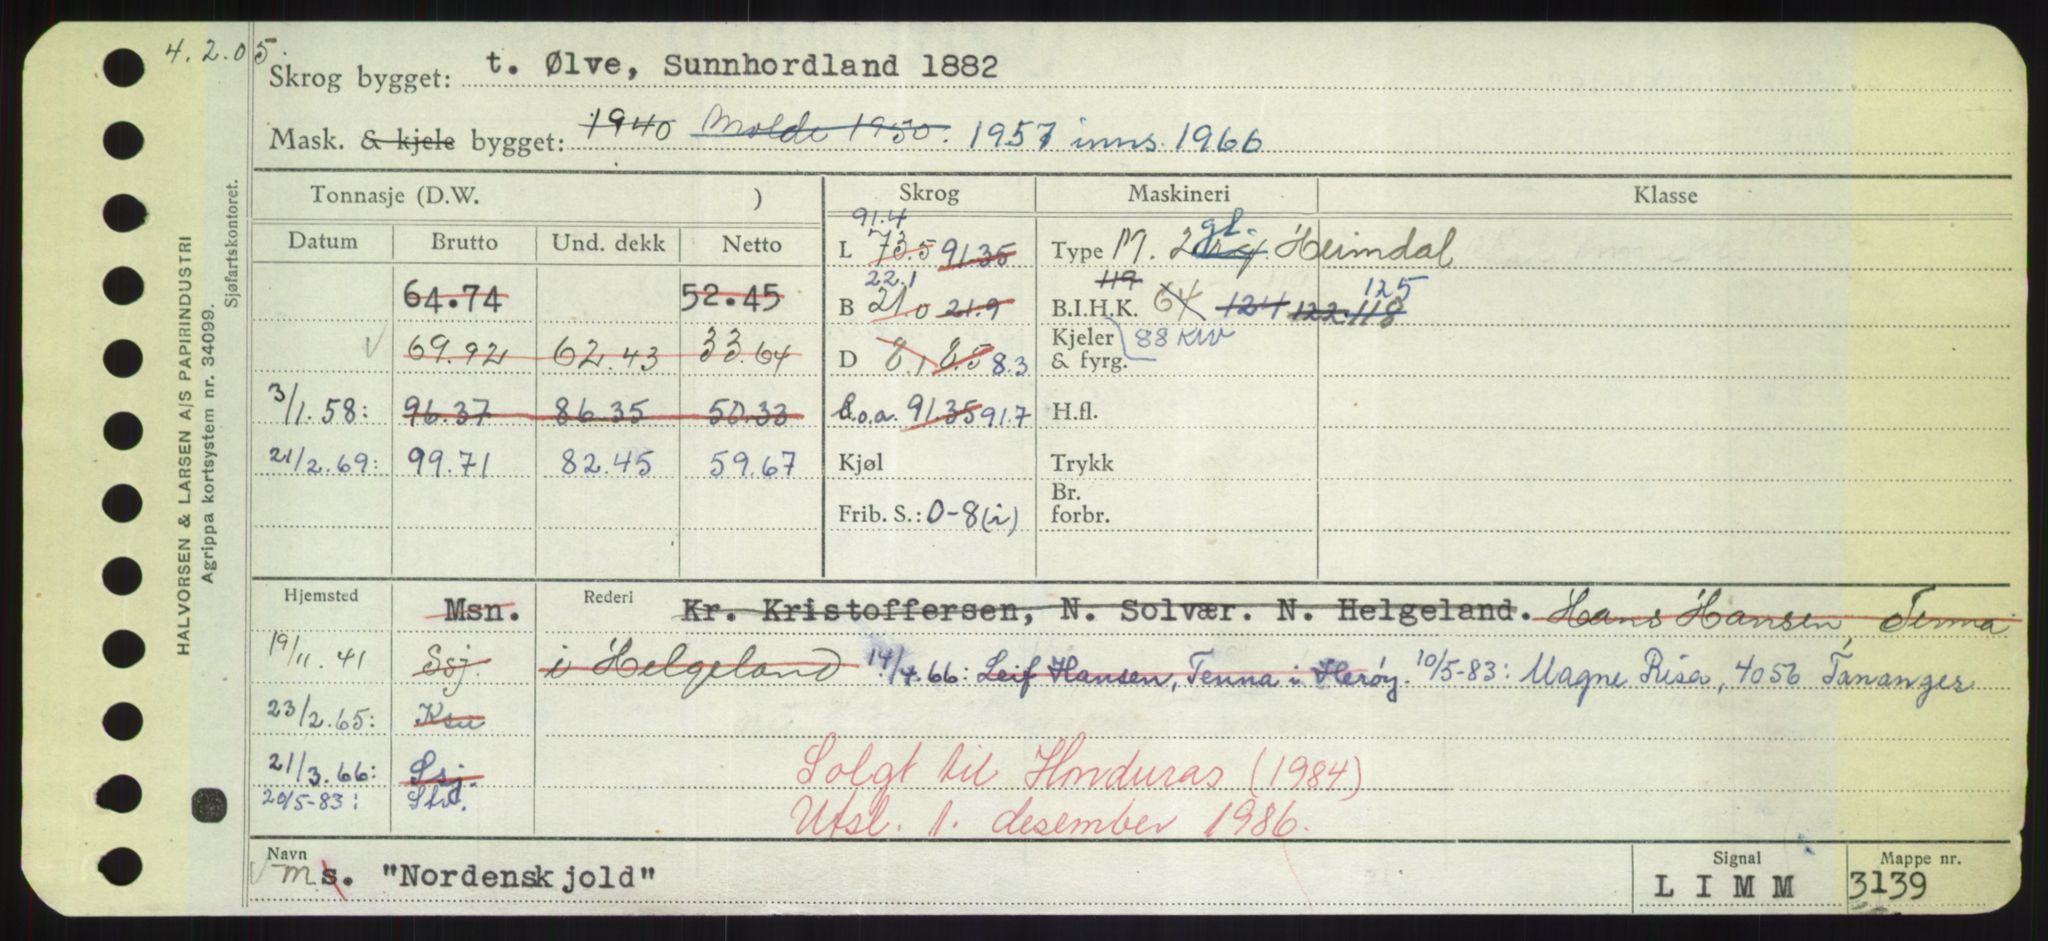 4.2.05.
Skrog bygget: t. Ølve, Sunnhordland 1882
Mask. & kjele bygget: 1940 Molde 1950. 1957 inns. 1966
Tonnasje (D.W. ) Skrog Maskineri Klasse
Datum Brutto Und. dekk Netto
91.4
L 73.5 91.35
gl.
Type M. 2 Heimdal
64.74 52.45
22.1
B 21.0 21.9
119 125
B.I.H.K. 64 124 122 118
√ 69.92 62.43 33.64
D 8.1 8.5 8.3
Kjeler & fyrg. 88 KW
3/1.58: 96.37 86.35 50.33
L.o.a. 91.35 91.7
H.fl.
21/2.69: 99.71 82.45 59.67
Kjøl
Trykk
Frib. S.: 0-8(i)
Br. forbr.
Hjemsted Msn. Rederi Kr. Kristoffersen, N. Solvær. N. Helgeland. Hans Hansen, Tenna
19/11.41 Ssj. i Helgeland 14/4.66: Leif Hansen, Tenna i Herøy. 10/5-83: Magne Risa, 4056 Tananger
23/2.65: Ksu
21/3.66: Ssj. Solgt til Honduras (1984)
20/5-83: Utsl. 1. desember 1986.
Navn Signal Mappe nr.
√ m s. "Nordenskjold" L I M M 3139
HALVORSEN & LARSEN A/S PAPIRINDUSTRI
Agrippa kortsystem nr. 34099.
Sjøfartskontoret.